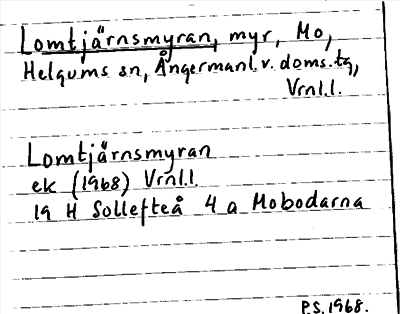 Lomtjärnsmyran, myr, Mo,
Helgums sn, Ångermanl. v. doms. tg,
Vrnl.l.
Lomtjärnsmyran
ek (1968) Vrnl.l.
19 H Sollefteå 4 a Mobodarna
P.S. 1968.